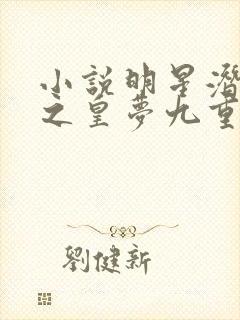 小說明星潛
之皇夢九重
劉健新